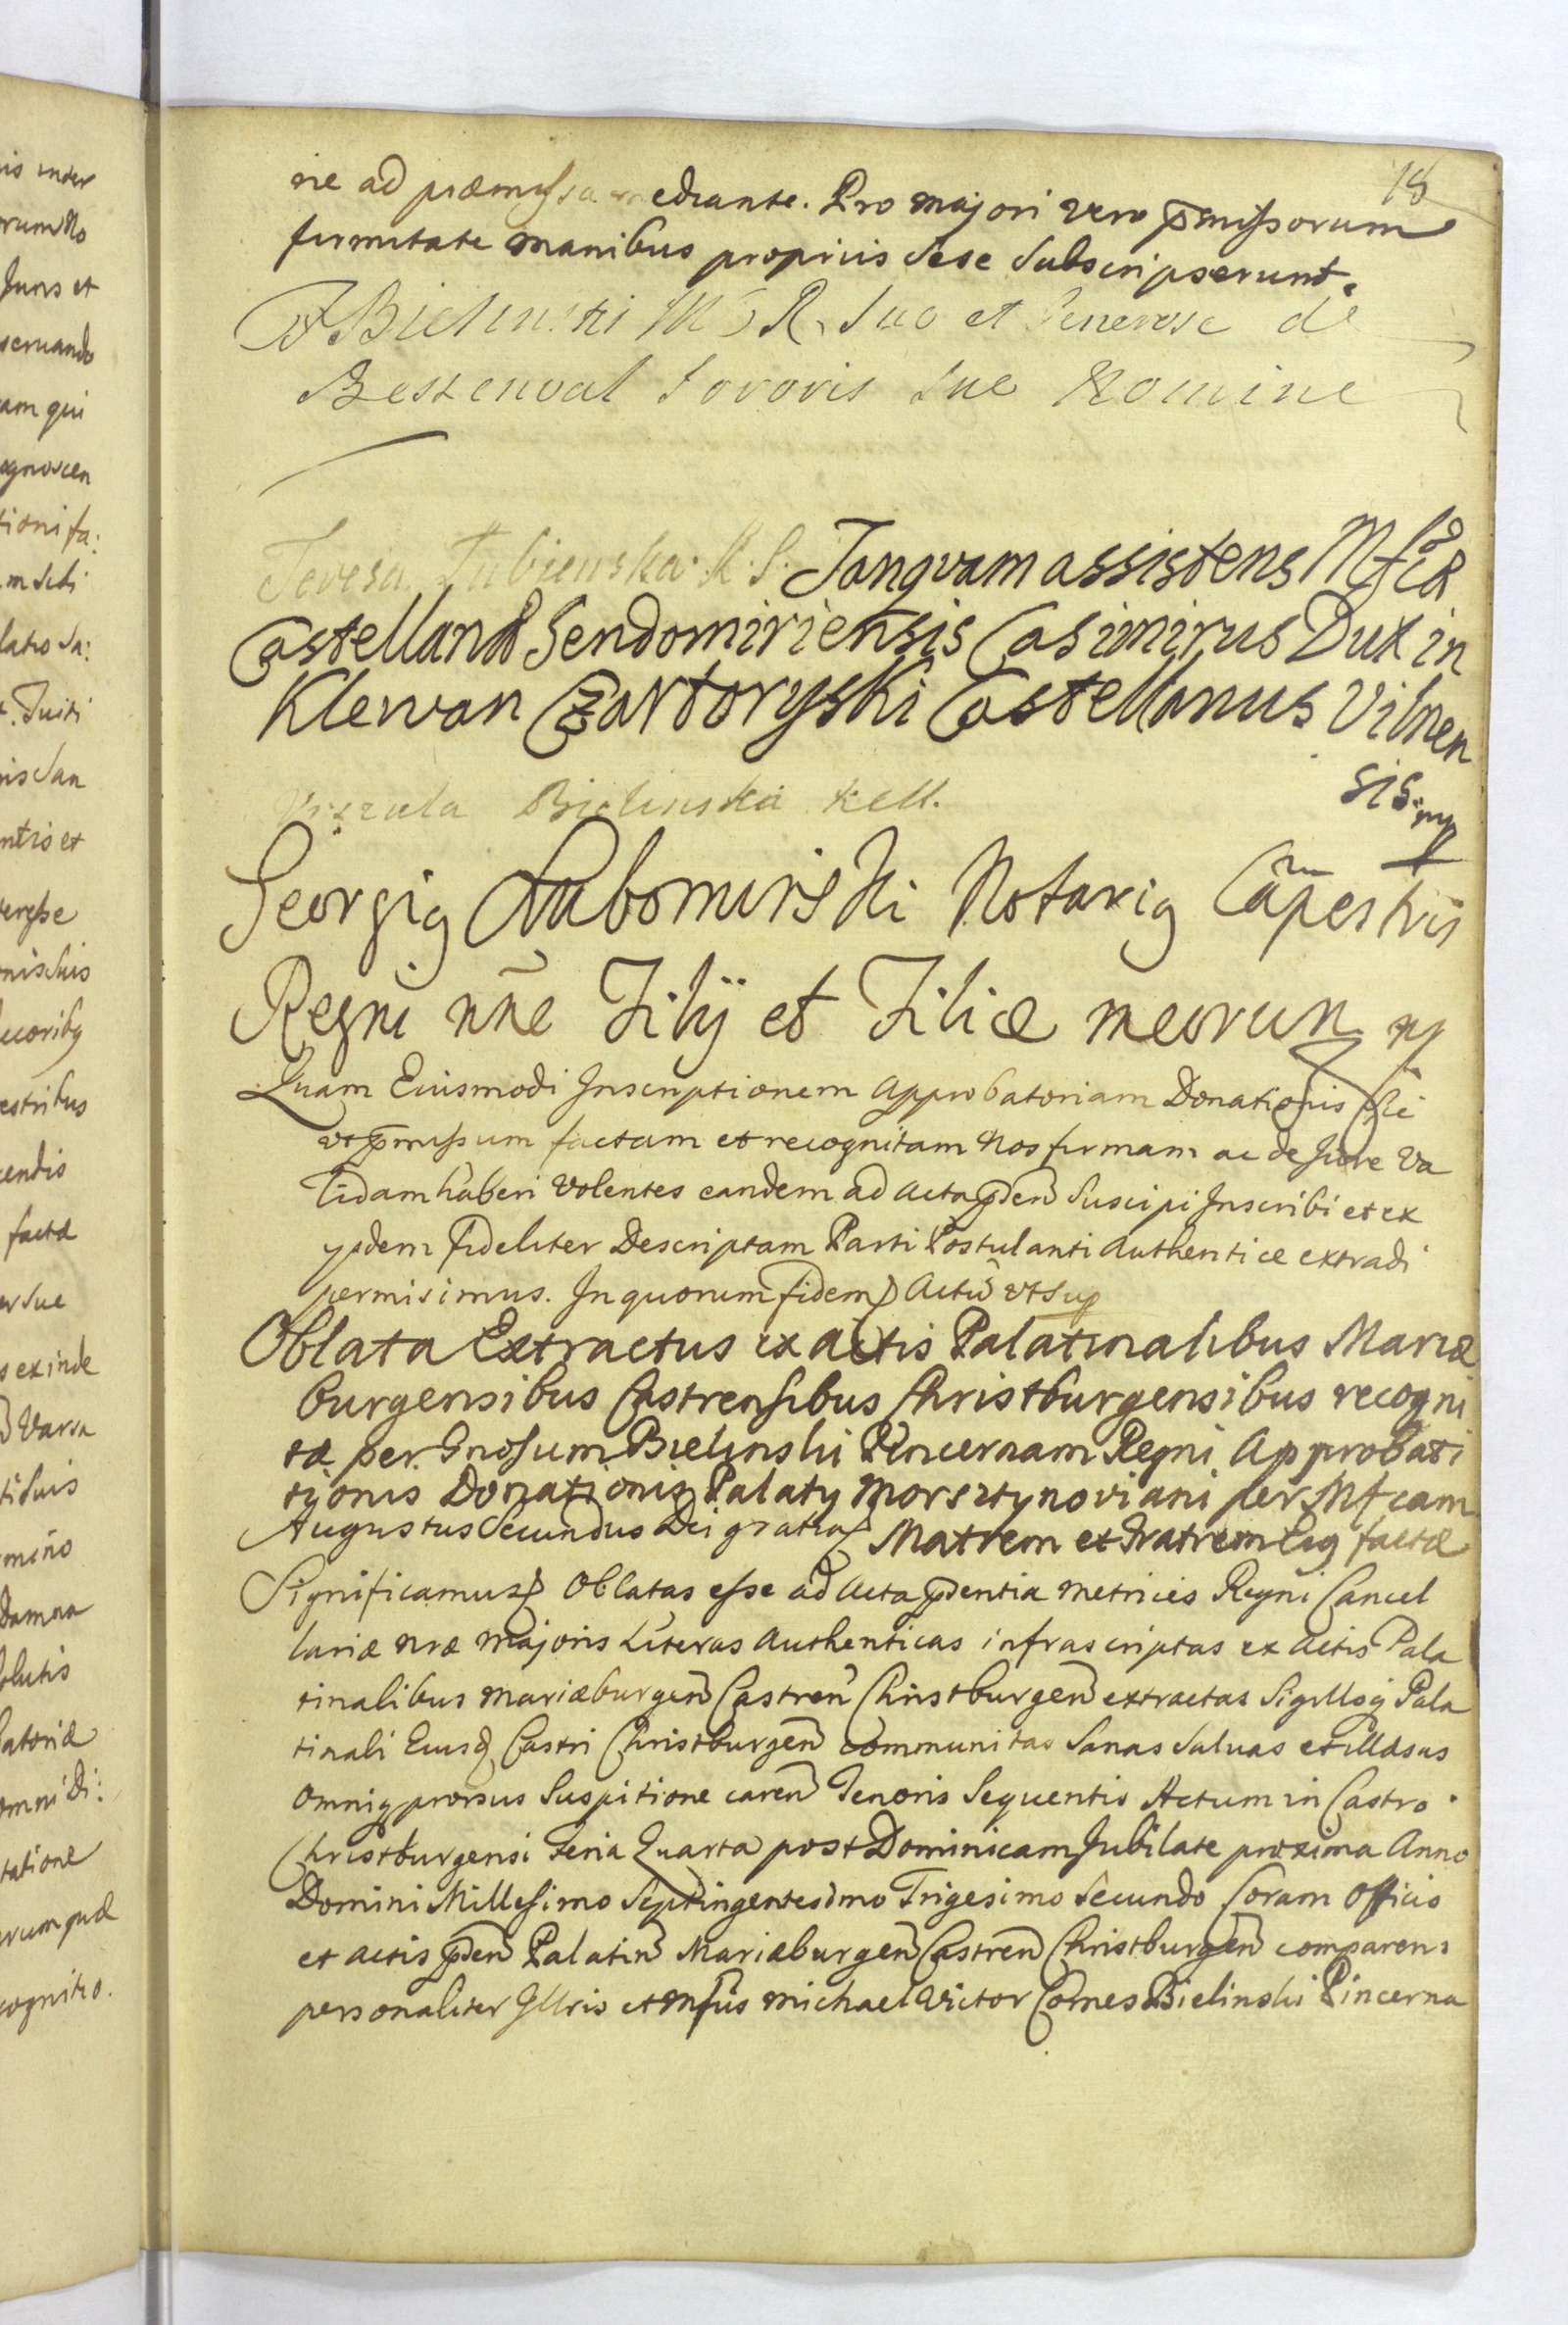 18
ne ad præmissa mediante. Pro majori vero p̄missorum
firmitate manibus propriis sese subscripserunt.
Bielinski M R Suo et Generose de
Bessenval Sororis sue Nomine
Teresa K. S. Tanqvam assistens Mfcæ
Castellanæ Sendomiriensis Casimirus Dux in
Klewan Czartoryski Castellanus Vilnen
sis. mp
Vrszula Bielinska Kell.
Georgiq Lubomirski Notariq Cāpestris
Regni nñe Filij et Filiæ meorum mp
Quam Eiusmodi Inscriptionem Approbatoriam Donationis sic
vt p̄missum factam et recognitam Nos firmam ac de Jure Va
lidam haberi Volentes eandem ad Acta p̄den Suscipi Inscribi et ex
ysdem fideliter Descriptam Parti Postulanti Authentice extradi
permisimus. In quorum fidem Actū vt sup
Oblata Extractus ex actis Palatinalibus Mariæ
burgensibus Castrensibus Christburgensibus recogni
tæ per Gnosum Bielinski Pincernam Regni Approbati
tionis Donationis Palaty Morsztynoviani per Mfcam
Augustus Secundus Dei gratia Matrem et Fratrem Eiq factæ
Significamus Oblatas esse ad Acta p̄dentia Metrices Regni Cancel
lariæ nræ Majoris Literas Authenticas infrascriptas ex Actis Pala
tinalibus Mariæburgen Castren Christburgen extractas Sigilloq Pala
tinali Eiusd Castri Christburgen communitas Sanas Saluas et illæsas
omniq prorsus Suspitione caren Tenoris Sequentis Actum in Castro
Christburgensi Feria Quarta post Dominicam Jubilate proxima Anno
Domini Millesimo Septingentesimo Trigesimo Secundo Coram Officio
et actis p̄den Palatin Mariæburgen Castren Christburgen comparens
personaliter Illris et Mfus Michael Victor Comes Bielinski Pincerna